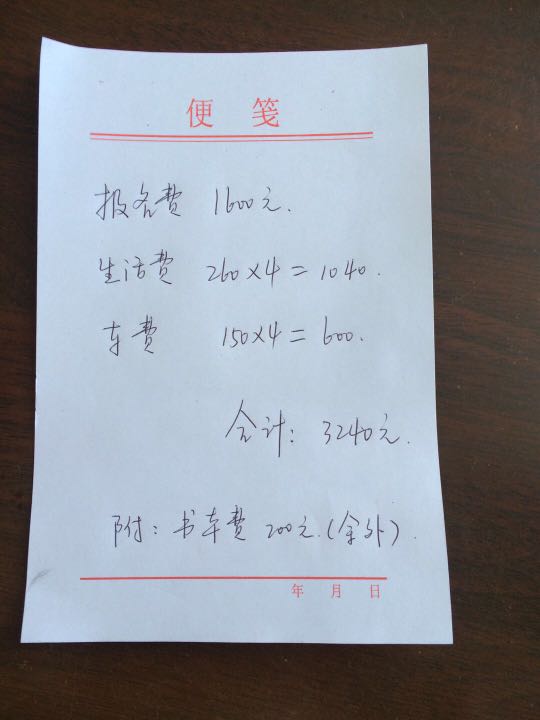 便 笺
报名费 1600元.
生活费 260×4=1040.
车费 150×4=600.
合计: 3240元.
附: 书车费 200元.(余外).
年 月 日